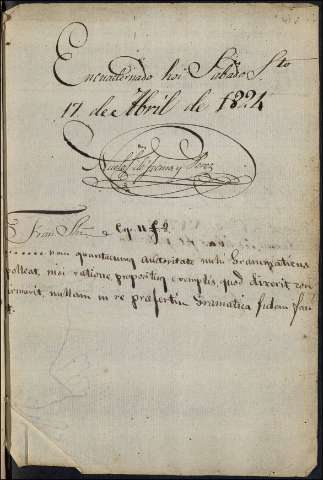 Encuadernado hoi Sabado Sto
17 de Abril de 1824
y Perez
Fran
non quantacunq auctoritate mihi Grammaticus
polleat, nisi ratione propositisq exemplis, quod dixerit con
firmarit, nullam in re præsertim Gramatica fidem faci
t.